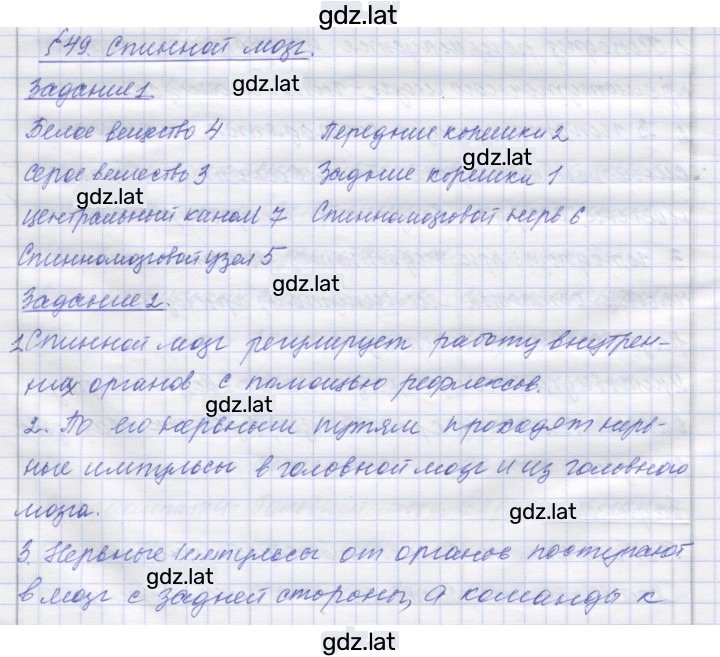 gdz.lat
§49. Спинной мозг.
gdz.lat
Задание 1
Белое вещество 4 Передние корешки 2
gdz.lat
Серое вещество 3 Задние корешки 1
gdz.lat
Центральный канал 7 Спинномозговой нерв 6
Спинномозговой узел 5
gdz.lat
Задание 2.
1. Спинной мозг регулирует работу внутрен-
них органов с помощью рефлексов.
gdz.lat
2. По его нервным путям проходят нерв-
ные импульсы в головной мозг и из головного
мозга.
gdz.lat
3. Нервные импульсы от органов поступают
gdz.lat
в мозг с задней стороны, а команды к
gdz.lat